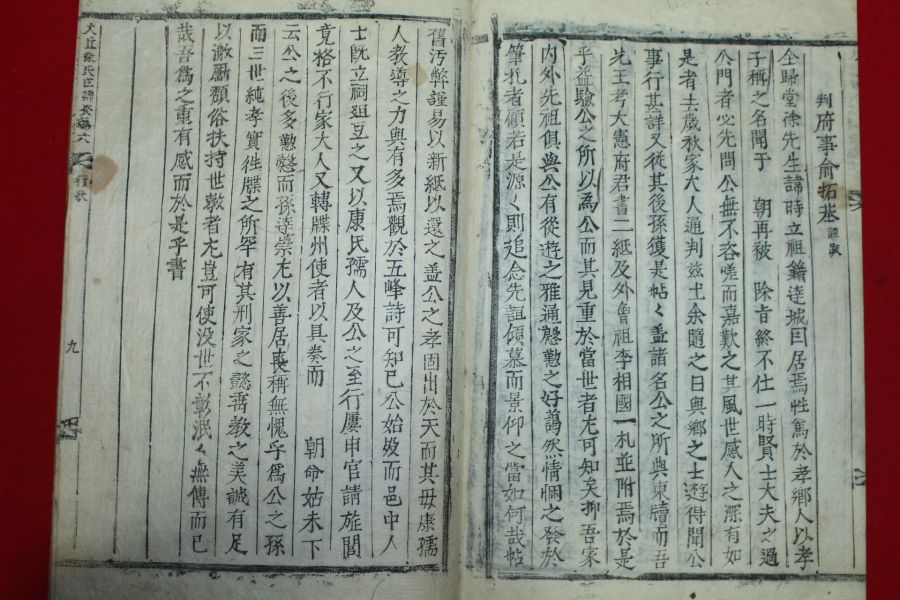 判府事俞拓基謹跋
全歸堂徐先生諱時立祖籍達城因居焉性篤於孝鄕人以孝
子稱之名聞于 朝再被 除旨終不仕一時賢士大夫之過
公門者必先問公無不咨嗟而嘉歎之其風世感人之深有如
是者士歲秋家大人通判玆土余隨之日與鄕之士遊得聞公
事行甚詳又從其後孫獲是帖〻盖諸名公之所與束牘而吾
先王考大憲府君書二紙及外曾祖李相國一札並附焉於是
乎益驗公之所以爲公而其見重於當世者尤可知矣抑吾家
內外先祖俱與公有從遊之雅通慇懃之好藹然情悃之發於
筆札者顧若是源〻則追念先誼傾慕而景仰之當如何哉帖
舊汚弊謹易以新紙以還之盖公之孝固出於天而其毋康孺
人敎導之力與有多焉觀於五峰詩可知已公始歿而邑中人
士旣立祠俎豆之又以康氏孺人及公之至行屢申官請旌閭
竟格不行家大人又轉牒州使者以具奏而 朝命姑未下
云公之後多懃慤而孫達崇尤以善居喪稱無愧乎爲公之孫
而三世純孝實徃牒之所罕有其刑家之懿壼敎之美誠有足
以激勵頹俗扶持世敎者尤豈可使沒世不彰泯〻無傳而已
哉吾爲之重有感而於是乎書
大丘徐氏世譜卷編六
行狀
九